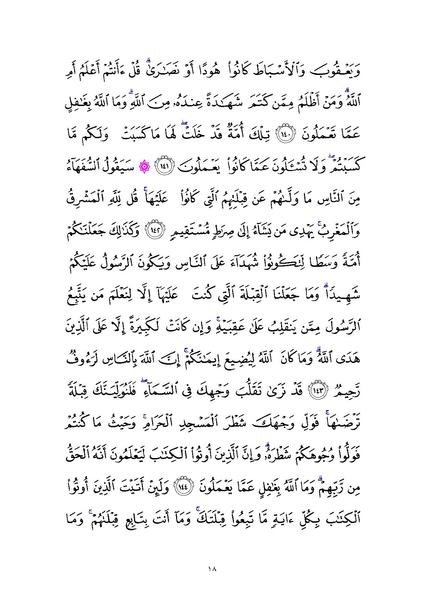 وَيَعْقُوبَ وَالْأَسْبَاطَ كَانُوا۟ هُودًا أَوْ نَصَٰرَىٰ ۗ قُلْ ءَأَنتُمْ أَعْلَمُ أَمِ
اللَّهُ ۗ وَمَنْ أَظْلَمُ مِمَّن كَتَمَ شَهَٰدَةً عِندَهُۥ مِنَ اللَّهِ ۗ وَمَا اللَّهُ بِغَٰفِلٍ
عَمَّا تَعْمَلُونَ ١٤٠ تِلْكَ أُمَّةٌ قَدْ خَلَتْ ۖ لَهَا مَا كَسَبَتْ وَلَكُم مَّا
كَسَبْتُمْ ۖ وَلَا تُسْـَٔلُونَ عَمَّا كَانُوا۟ يَعْمَلُونَ ١٤١ ۞ سَيَقُولُ السُّفَهَآءُ
مِنَ النَّاسِ مَا وَلَّىٰهُمْ عَن قِبْلَتِهِمُ الَّتِى كَانُوا۟ عَلَيْهَا ۚ قُل لِّلَّهِ الْمَشْرِقُ
وَالْمَغْرِبُ ۚ يَهْدِى مَن يَشَآءُ إِلَىٰ صِرَٰطٍ مُّسْتَقِيمٍ ١٤٢ وَكَذَٰلِكَ جَعَلْنَٰكُمْ
أُمَّةً وَسَطًا لِّتَكُونُوا۟ شُهَدَآءَ عَلَى النَّاسِ وَيَكُونَ الرَّسُولُ عَلَيْكُمْ
شَهِيدًا ۗ وَمَا جَعَلْنَا الْقِبْلَةَ الَّتِى كُنتَ عَلَيْهَآ إِلَّا لِنَعْلَمَ مَن يَتَّبِعُ
الرَّسُولَ مِمَّن يَنقَلِبُ عَلَىٰ عَقِبَيْهِ ۚ وَإِن كَانَتْ لَكَبِيرَةً إِلَّا عَلَى الَّذِينَ
هَدَى اللَّهُ ۗ وَمَا كَانَ اللَّهُ لِيُضِيعَ إِيمَٰنَكُمْ ۚ إِنَّ اللَّهَ بِالنَّاسِ لَرَءُوفٌ
رَّحِيمٌ ١٤٣ قَدْ نَرَىٰ تَقَلُّبَ وَجْهِكَ فِى السَّمَآءِ ۖ فَلَنُوَلِّيَنَّكَ قِبْلَةً
تَرْضَىٰهَا ۚ فَوَلِّ وَجْهَكَ شَطْرَ الْمَسْجِدِ الْحَرَامِ ۚ وَحَيْثُ مَا كُنتُمْ
فَوَلُّوا۟ وُجُوهَكُمْ شَطْرَهُۥ ۗ وَإِنَّ الَّذِينَ أُوتُوا۟ الْكِتَٰبَ لَيَعْلَمُونَ أَنَّهُ الْحَقُّ
مِن رَّبِّهِمْ ۗ وَمَا اللَّهُ بِغَٰفِلٍ عَمَّا يَعْمَلُونَ ١٤٤ وَلَئِنْ أَتَيْتَ الَّذِينَ أُوتُوا۟
الْكِتَٰبَ بِكُلِّ ءَايَةٍ مَّا تَبِعُوا۟ قِبْلَتَكَ ۚ وَمَآ أَنتَ بِتَابِعٍ قِبْلَتَهُمْ ۚ وَمَا
١٨